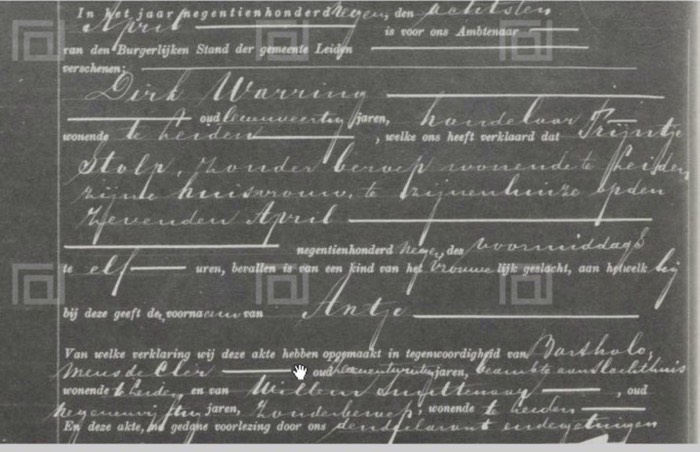 In het jaar negentienhonderd negen, den achtsten
April is voor ons Ambtenaar
van den Burgerlijken Stand der gemeente Leiden
verschenen:
Dirk Warring
oud jaren, handelaar
wonende te Leiden, welke ons heeft verklaard dat Trijntje
Stolp, zonder beroep wonende te Leiden
zijne huisvrouw, te zijnenhuize op den
zevenden April
negentienhonderd negen, des voormiddags
te elf uren, bevallen is van een kind van het vrouwelijk geslacht, aan hetwelk hij
bij deze geeft de voornaam van Antje
Van welke verklaring wij deze akte hebben opgemaakt in tegenwoordigheid van Bartholo,
meus de Cler oud jaren, beambte aan Slachthuis
wonende te Leiden, en van Willem, oud
negenenvijftig jaren, zonder beroep, wonende te Leiden
En deze akte, na gedane voorlezing door ons den declarant en de getuigen